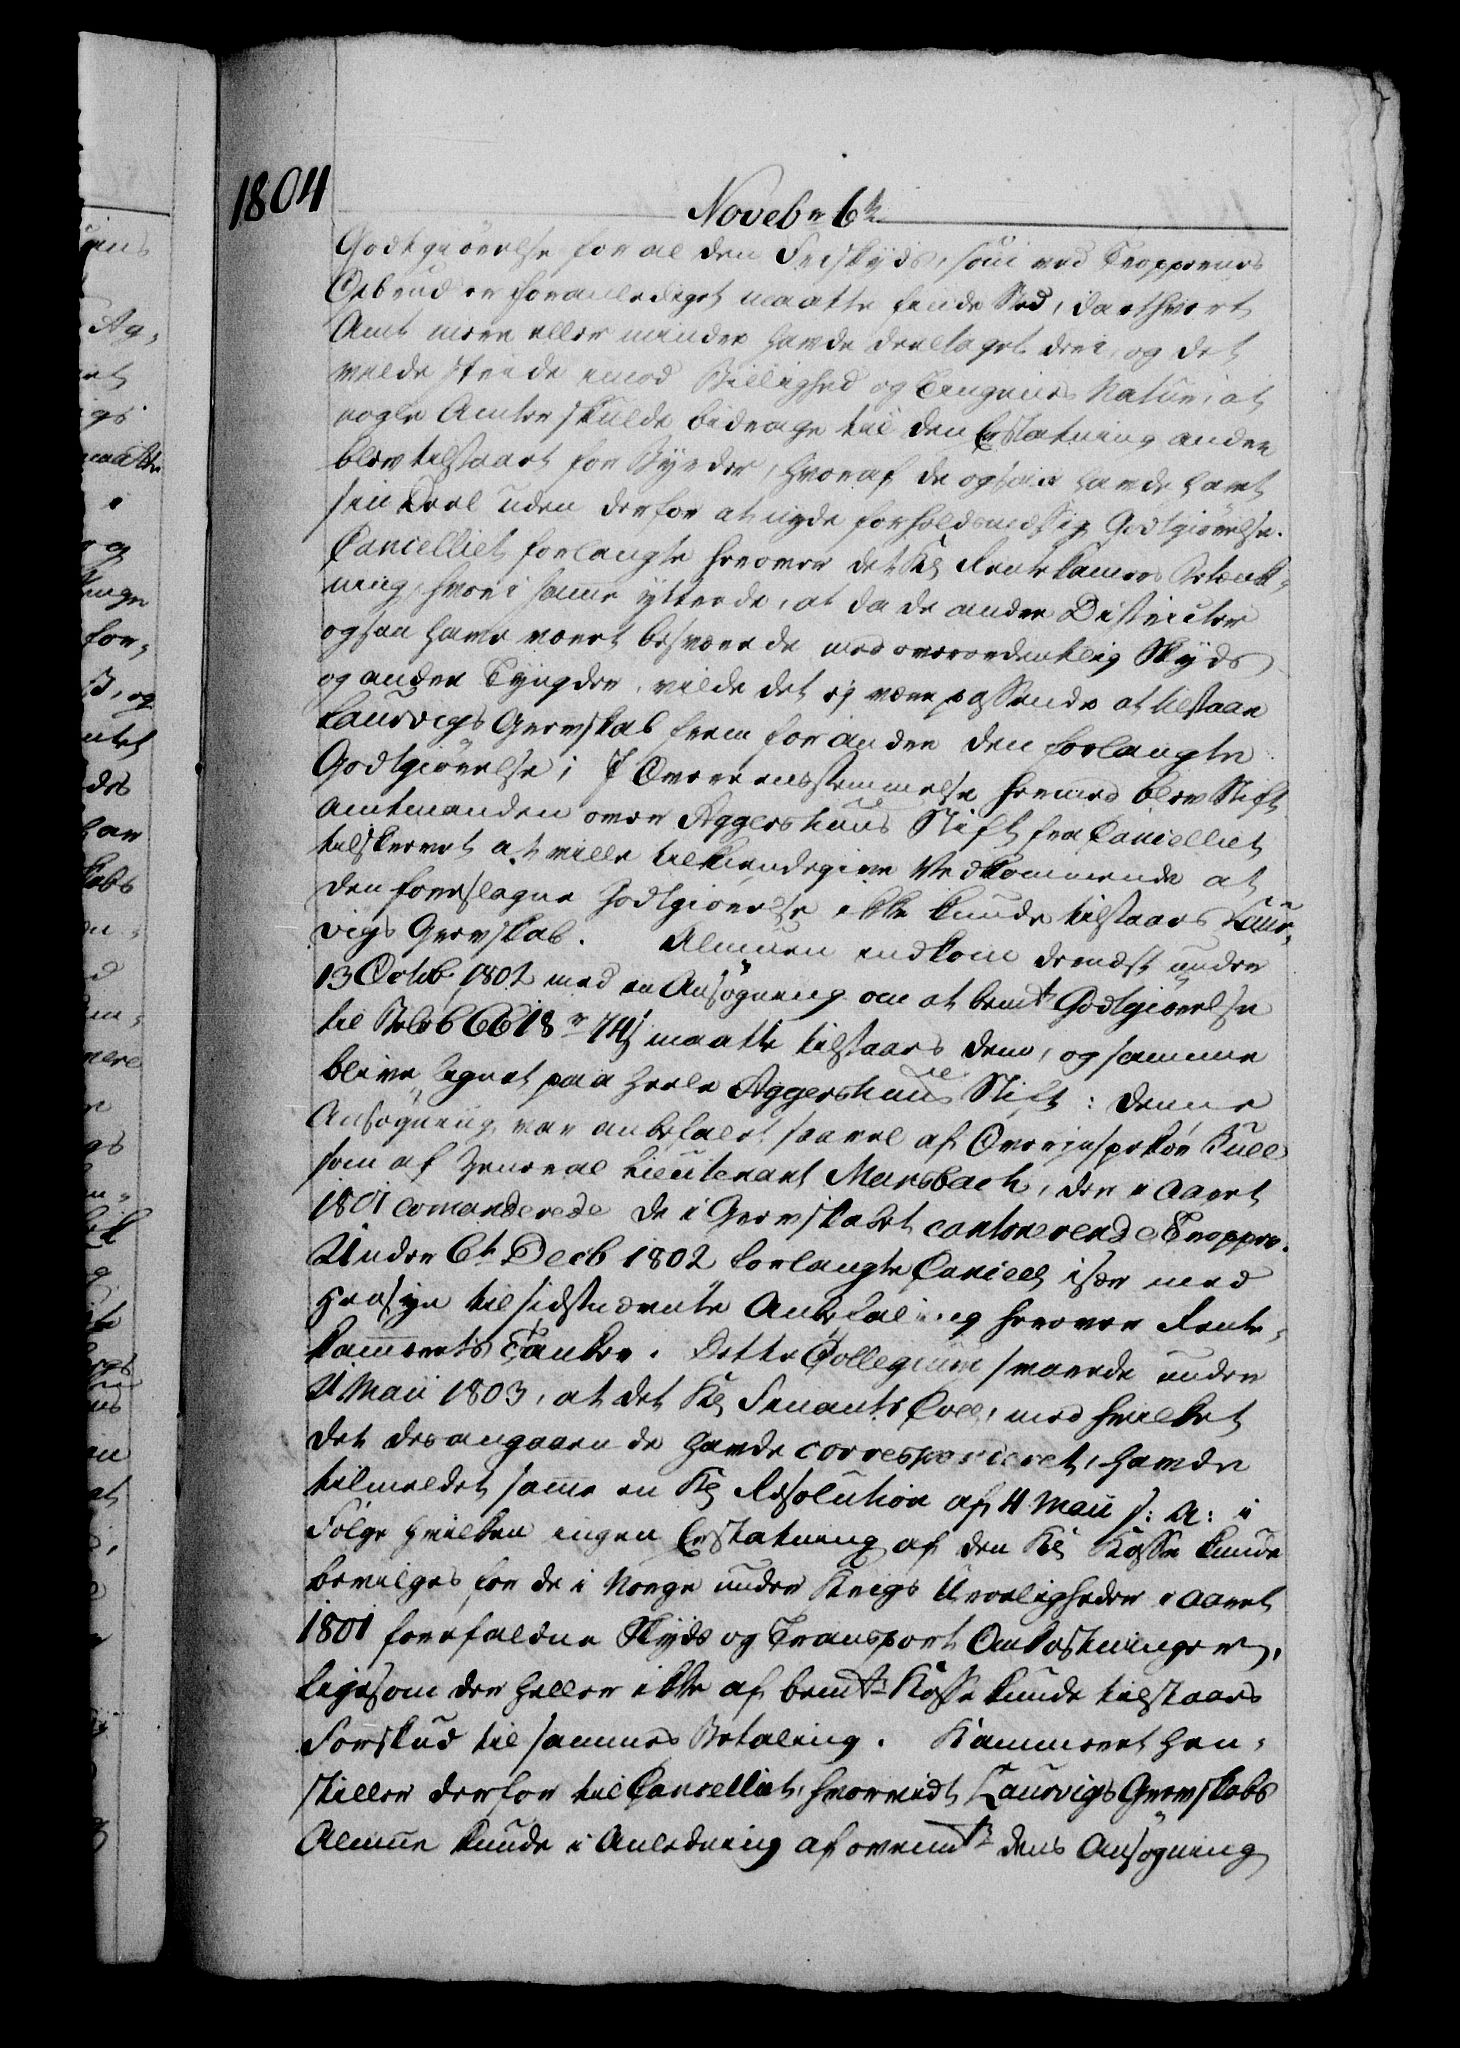 1804
Novebr 6te
Godtgiörelse for al den Friskyds, som ved Troppernes
Opbrud er foranlediget maatte finde Sted, da ethvert
Amt mere eller mindre havde deeltaget deri, og det
vilde stride imod Billighed og Tingenes Natur, at
nogle Amter skulde bidrage til den Erstatning andre
blev tilstaaet for Byrder, hvoraf de ogsaa havde havt
sin Deel uden derfor at nyde forholdsmessig Godtgiörelse.
Cancelliet forlangte herover det Kgl Rentekamers Betænk-
ning, hvori samme yttrede, at da de andre Districter
ogsaa have været besværede med overordentlig Skyds
og andre Tyngder, vilde det ej være passende at tilstaae
Laurvigs Grevskab frem for andre den forlangte
Godtgiörelse; I Overeensstemmelse hermed blev Stift
amtmanden over Aggershuus Stift fra Cancelliet
tilskrevet at ville tilkiendegive Vedkommende at
den foreslagne Godtgiörelse ikke kunde tilstaaes Laur-
vigs Grevskab. Almuen indkom dernæst under
13 Octob. 1802 med en Ansögning om at bemte Godtgiörelse
til Beløb 6618 r 74 s maatte tilstaaes dem, og samme
blive lignet paa heele Aggershuus Stift: denne
Ansögning var anbefalet saavel af Overinspektör Bull
som af General Lieutenant Mansbach, der i Aaret
1801 comanderede de i Grevskabet cantonerende Tropper.
Under 6t Decb 1802 forlangte Cancell især med
Hensyn til sidstnævnte Anbefaling herover Rente-
kammerets Tanker. Dette Collegium svarede under
21 Maii 1803, at det Kgl Finants Coll, med hvilket
det desangaaende havde corresponderet, havde
tilmeldet samme en Kgl Resolution af 4 Maii s: A: i
Følge hvilken ingen Erstatning af den Kgl Kasse kunde
bevilges for de i Norge under Krigs Uroelighederne i Aaret
1801 forefaldne Skyds og Transport Omkostninger,
ligesom der heller ikke af bemte Kasse kunde tilstaaes
Forskud til sammes Betaling. Kammeret hen-
stiller derfor til Cancelliet, hvorvidt Laurvigs Grevskabs
Almue kunde i Anledning af ovenmte dens Ansögning